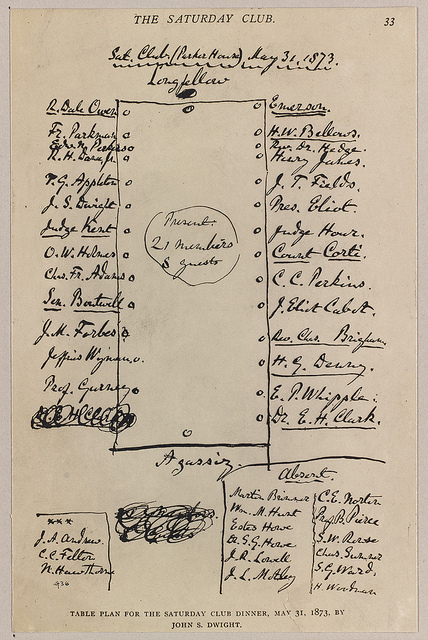 THE SATURDAY CLUB.
33
Sat. Club (Parker House) May 31, 1873.
Longfellow
R. Dale Owen
Fr. Parkman
Edw. N. Perkins
R. H. Dana, Jr.
T. G. Appleton
J. S. Dwight
Judge Kent
O. W. Holmes
Chas. Fr. Adams
Sen. Boutwell
J. M. Forbes
Jeffries Wyman
Prof. Gurney
Present.
21 members
8 guests
Emerson.
H. W. Bellows.
Rev. Dr. Hedge.
Henry James.
J. T. Fields.
Pres. Eliot.
Judge Hoar.
Count Corti.
C. C. Perkins.
J. Eliot Cabot.
Rev. Chas. Brigham.
H. G. Denny.
E. P. Whipple.
Dr. E. H. Clark.
Agassiz.
Absent.
Martin Brimmer
Wm. M. Hunt
Estes Howe
Dr. S. G. Howe
J. R. Lowell
J. L. Motley
C. E. Norton
Prof. B. Pierce
S. W. Rowse
Chas. Sumner
S. G. Ward.
H. Woodman
***
J. A. Andrew.
C. C. Felton
N. Hawthorne
TABLE PLAN FOR THE SATURDAY CLUB DINNER, MAY 31, 1873, BY
JOHN S. DWIGHT.